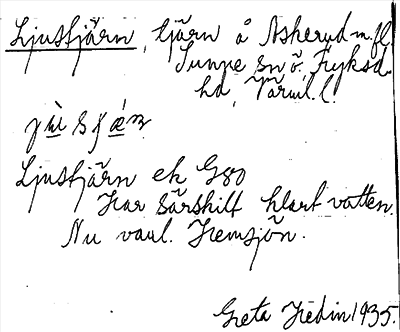 Ljustjärn, tjärn å Askerud m.fl.
Sunne sn ö, Fryksd.
hd, Värml. l.
Ljustjärn ek G80
Har särskilt klart vatten.
Nu vanl. Hemsjön.
Greta Hedin 1935.